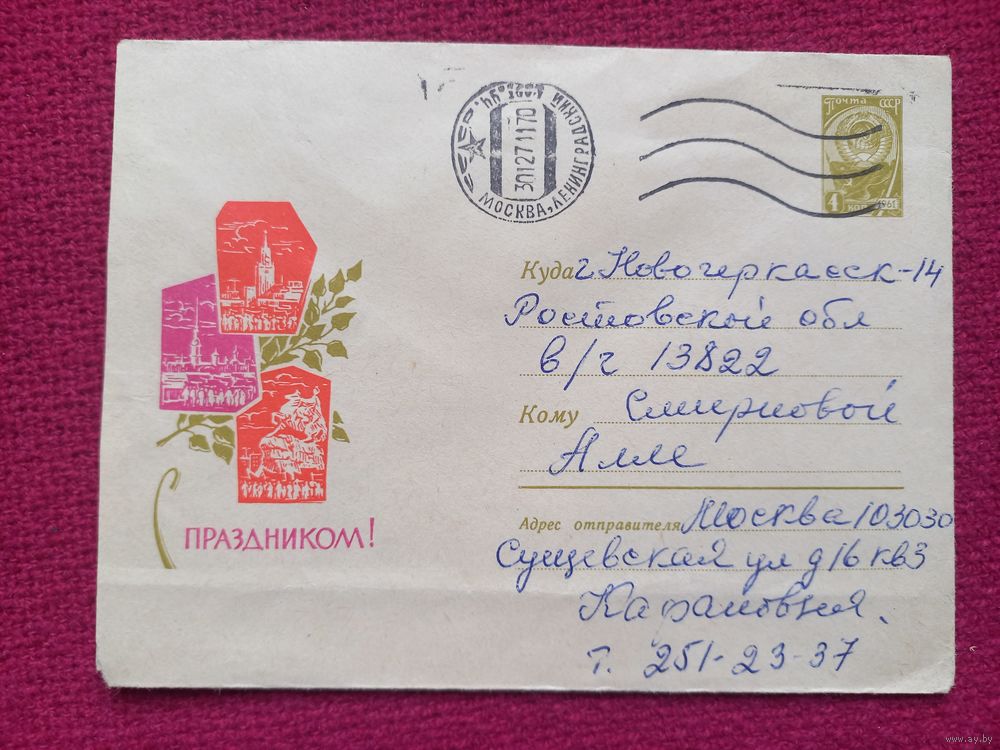 ПОЧТА СССР
4
КОП
1961
МОСКВА, ЛЕНИНГРАДСКИЙ
30127 1170
Куда г. Новочеркасск-14
Ростовской обл
в/ч 13822
Кому Смирновой
Алле
Адрес отправителя Москва 103030
Сущевская ул д16 кв3
т. 251-23-37
С ПРАЗДНИКОМ!
www.ay.by